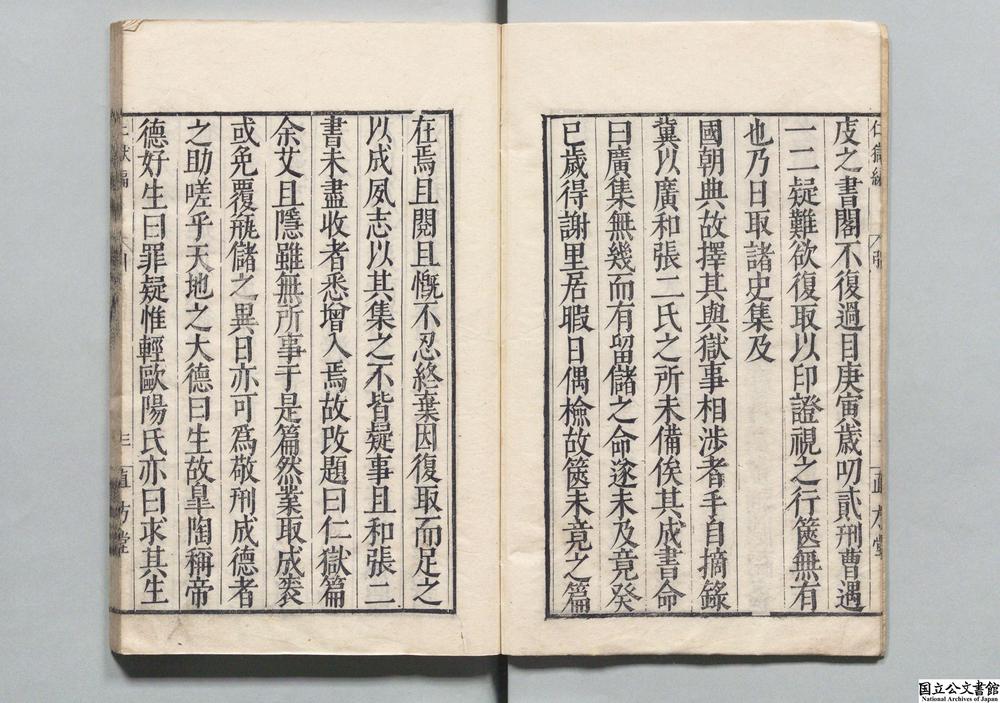 庋之書閣不復過目庚寅歲叨貳刑曹遇
一二疑難欲復取以印證視之行篋無有
也乃日取諸史集及
國朝典故擇其與獄事相涉者手自摘錄
冀以廣和張二氏之所未備俟其成書命
曰廣集無幾而有留儲之命遂未及竟癸
巳歲得謝里居暇日偶檢故篋未竟之篇
在焉且閱且慨不忍終棄因復取而足之
以成夙志以其集之不皆疑事且和張二
書未盡收者悉增入焉故改題曰仁獄篇
余艾且隱雖無所事于是篇然業取成袠
或免覆瓿儲之異日亦可爲敬刑成德者
之助嗟乎天地之大德曰生故皐陶稱帝
德好生曰罪疑惟輕歐陽氏亦曰求其生
仁獄編
三
直方堂
国立公文書館
National Archives of Japan